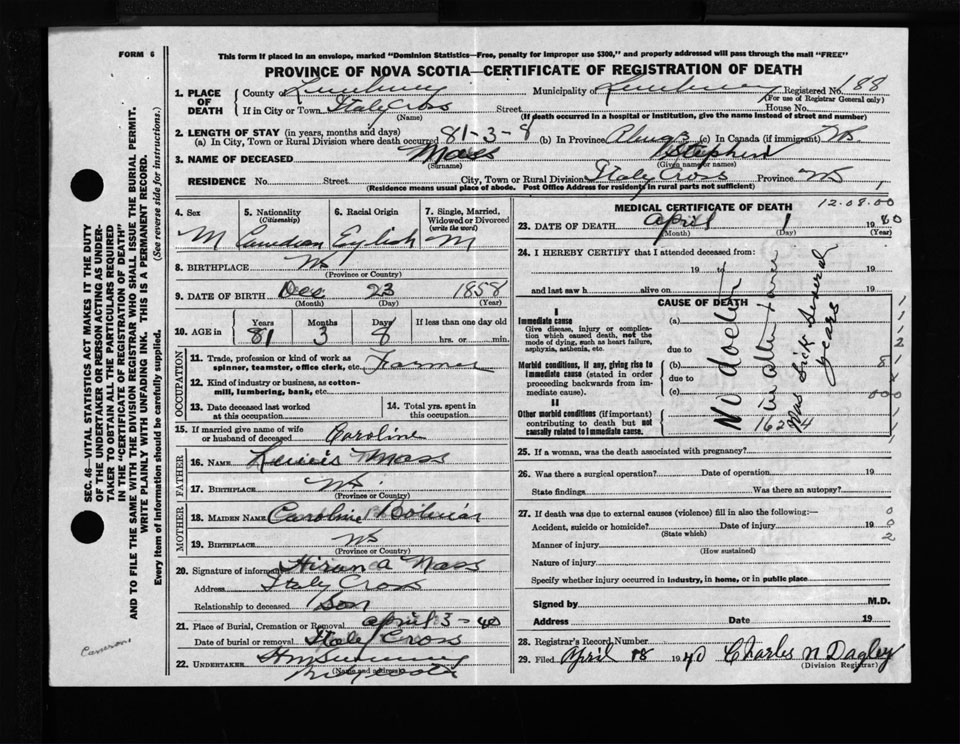 FORM 6
This form if placed in an envelope, marked "Dominion Statistics—Free, penalty for improper use $300," and properly addressed will pass through the mail "FREE"
PROVINCE OF NOVA SCOTIA—CERTIFICATE OF REGISTRATION OF DEATH
1. PLACE OF DEATH County of Lunenburg Municipality of Lunenburg Registered No. 188
(For use of Registrar General only)
If in City or Town Italy Cross Street House No.
(Name) (If death occurred in a hospital or institution, give the name instead of street and number)
2. LENGTH OF STAY (in years, months and days)
(a) In City, Town or Rural Division where death occurred 81-3-8 (b) In Province Always (c) In Canada (if immigrant) NS.
3. NAME OF DECEASED Mass Stephen
(Surname) (Given name or names)
RESIDENCE No. Street City, Town or Rural Division Italy Cross Province NS
(Residence means usual place of abode. Post Office Address for residents in rural parts not sufficient)
4. Sex M
5. Nationality (Citizenship) Canadian
6. Racial Origin English
7. Single, Married, Widowed or Divorced (write the word) M
8. BIRTHPLACE NS
(Province or Country)
9. DATE OF BIRTH Dec 23 1858
(Month) (Day) (Year)
10. AGE in Years Months Days If less than one day old
81 3 8 hrs. or min.
OCCUPATION
11. Trade, profession or kind of work as spinner, teamster, office clerk, etc. Farmer
12. Kind of industry or business, as cotton-mill, lumbering, bank, etc.
13. Date deceased last worked at this occupation
14. Total yrs. spent in this occupation
15. If married give name of wife or husband of deceased Caroline
FATHER
16. NAME Lewis Mass
17. BIRTHPLACE NS.
(Province or Country)
MOTHER
18. MAIDEN NAME Caroline
19. BIRTHPLACE NS
(Province or Country)
20. Signature of informant Hiram A Mass
Address Italy Cross
Relationship to deceased Son
21. Place of Burial, Cremation or Removal April 3-40
Date of burial or removal Italy Cross
22. UNDERTAKER
(Name and address)
MEDICAL CERTIFICATE OF DEATH 12.08.00
23. DATE OF DEATH April 1 1940
(Month) (Day) (Year)
24. I HEREBY CERTIFY that I attended deceased from:
19 to 19
and last saw h alive on 19
CAUSE OF DEATH
I
Immediate cause
Give disease, injury or complication which caused death, not the mode of dying, such as heart failure, asphyxia, asthenia, etc.
(a)
due to
Morbid conditions, if any, giving rise to immediate cause (stated in order proceeding backwards from immediate cause).
(b)
due to
(c)
II
Other morbid conditions (if important) contributing to death but not causally related to immediate cause.
No doctor
in attendance
Was sick several
years
162
25. If a woman, was the death associated with pregnancy?
26. Was there a surgical operation? Date of operation 19
State findings Was there an autopsy?
27. If death was due to external causes (violence) fill in also the following:—
Accident, suicide or homicide? Date of injury 19
(State which)
Manner of injury
(How sustained)
Nature of injury
Specify whether injury occurred in industry, in home, or in public place
Signed by M.D.
Address Date 19
28. Registrar's Record Number
29. Filed April 18 1940 Charles N Dagley
(Division Registrar)
SEC. 46—VITAL STATISTICS ACT MAKES IT THE DUTY
OF THE UNDERTAKER OR PERSON ACTING AS UNDER-
TAKER TO OBTAIN ALL THE PARTICULARS REQUIRED
IN THE "CERTIFICATE OF REGISTRATION OF DEATH"
AND TO FILE THE SAME WITH THE DIVISION REGISTRAR WHO SHALL ISSUE THE BURIAL PERMIT.
WRITE PLAINLY WITH UNFADING INK. THIS IS A PERMANENT RECORD.
Every item of information should be carefully supplied. (See reverse side for instructions.)
Cameron